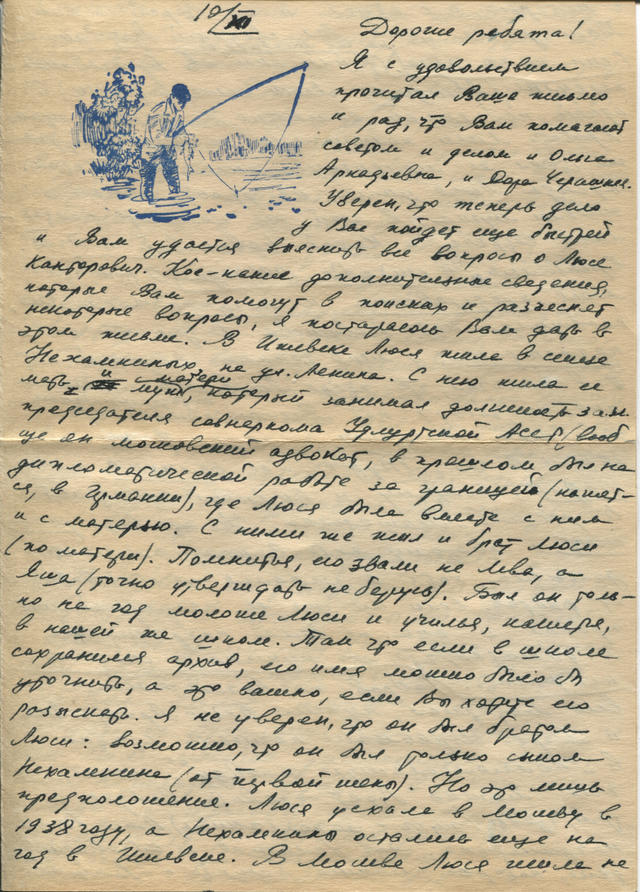 19/XII
Дорогие ребята!
Я с удовольствием
прочитал Ваше письмо
и рад, что Вам помогают
советом и делом и Ольга
Аркадьевна, и Дора Черашн.
Уверен, что теперь дело
у Вас пойдет еще быстрей
и Вам удастся выяснить все вопросы о Люсе
Канторович. Кое-какие дополнительные сведения,
которые Вам помогут в поисках и разъяснят
некоторые вопросы, я постараюсь Вам дать в
этом письме. В Ижевске Люся жила в семье
Нехамкиных на ул. Ленина. С нею жила ее
мать и муж матери, который занимал должность зам.
председателя совнаркома Удмуртской АССР (вооб
ще он московский адвокат, в прошлом был на
дипломатической работе за границей (кажет-
ся, в Германии), где Люся была вместе с ним
и с матерью. С ними же жил и брат Люси
(по матери). Помнится, его звали не Лева, а
Яша (точно утверждать не берусь). Был он толь-
ко на год моложе Люси и учился, кажется,
в нашей же школе. Так что если в школе
сохранился архив, его имя можно было бы
уточнить, а это важно, если Вы хотите его
разыскать. Я не уверен, что он был братом
Люси: возможно, что он был только сыном
Нехамкина (от первой жены). Но это лишь
предположение. Люся уехала в Москву в
1938 году, а Нехамкины остались еще на
год в Ижевске. В Москве Люся жила не